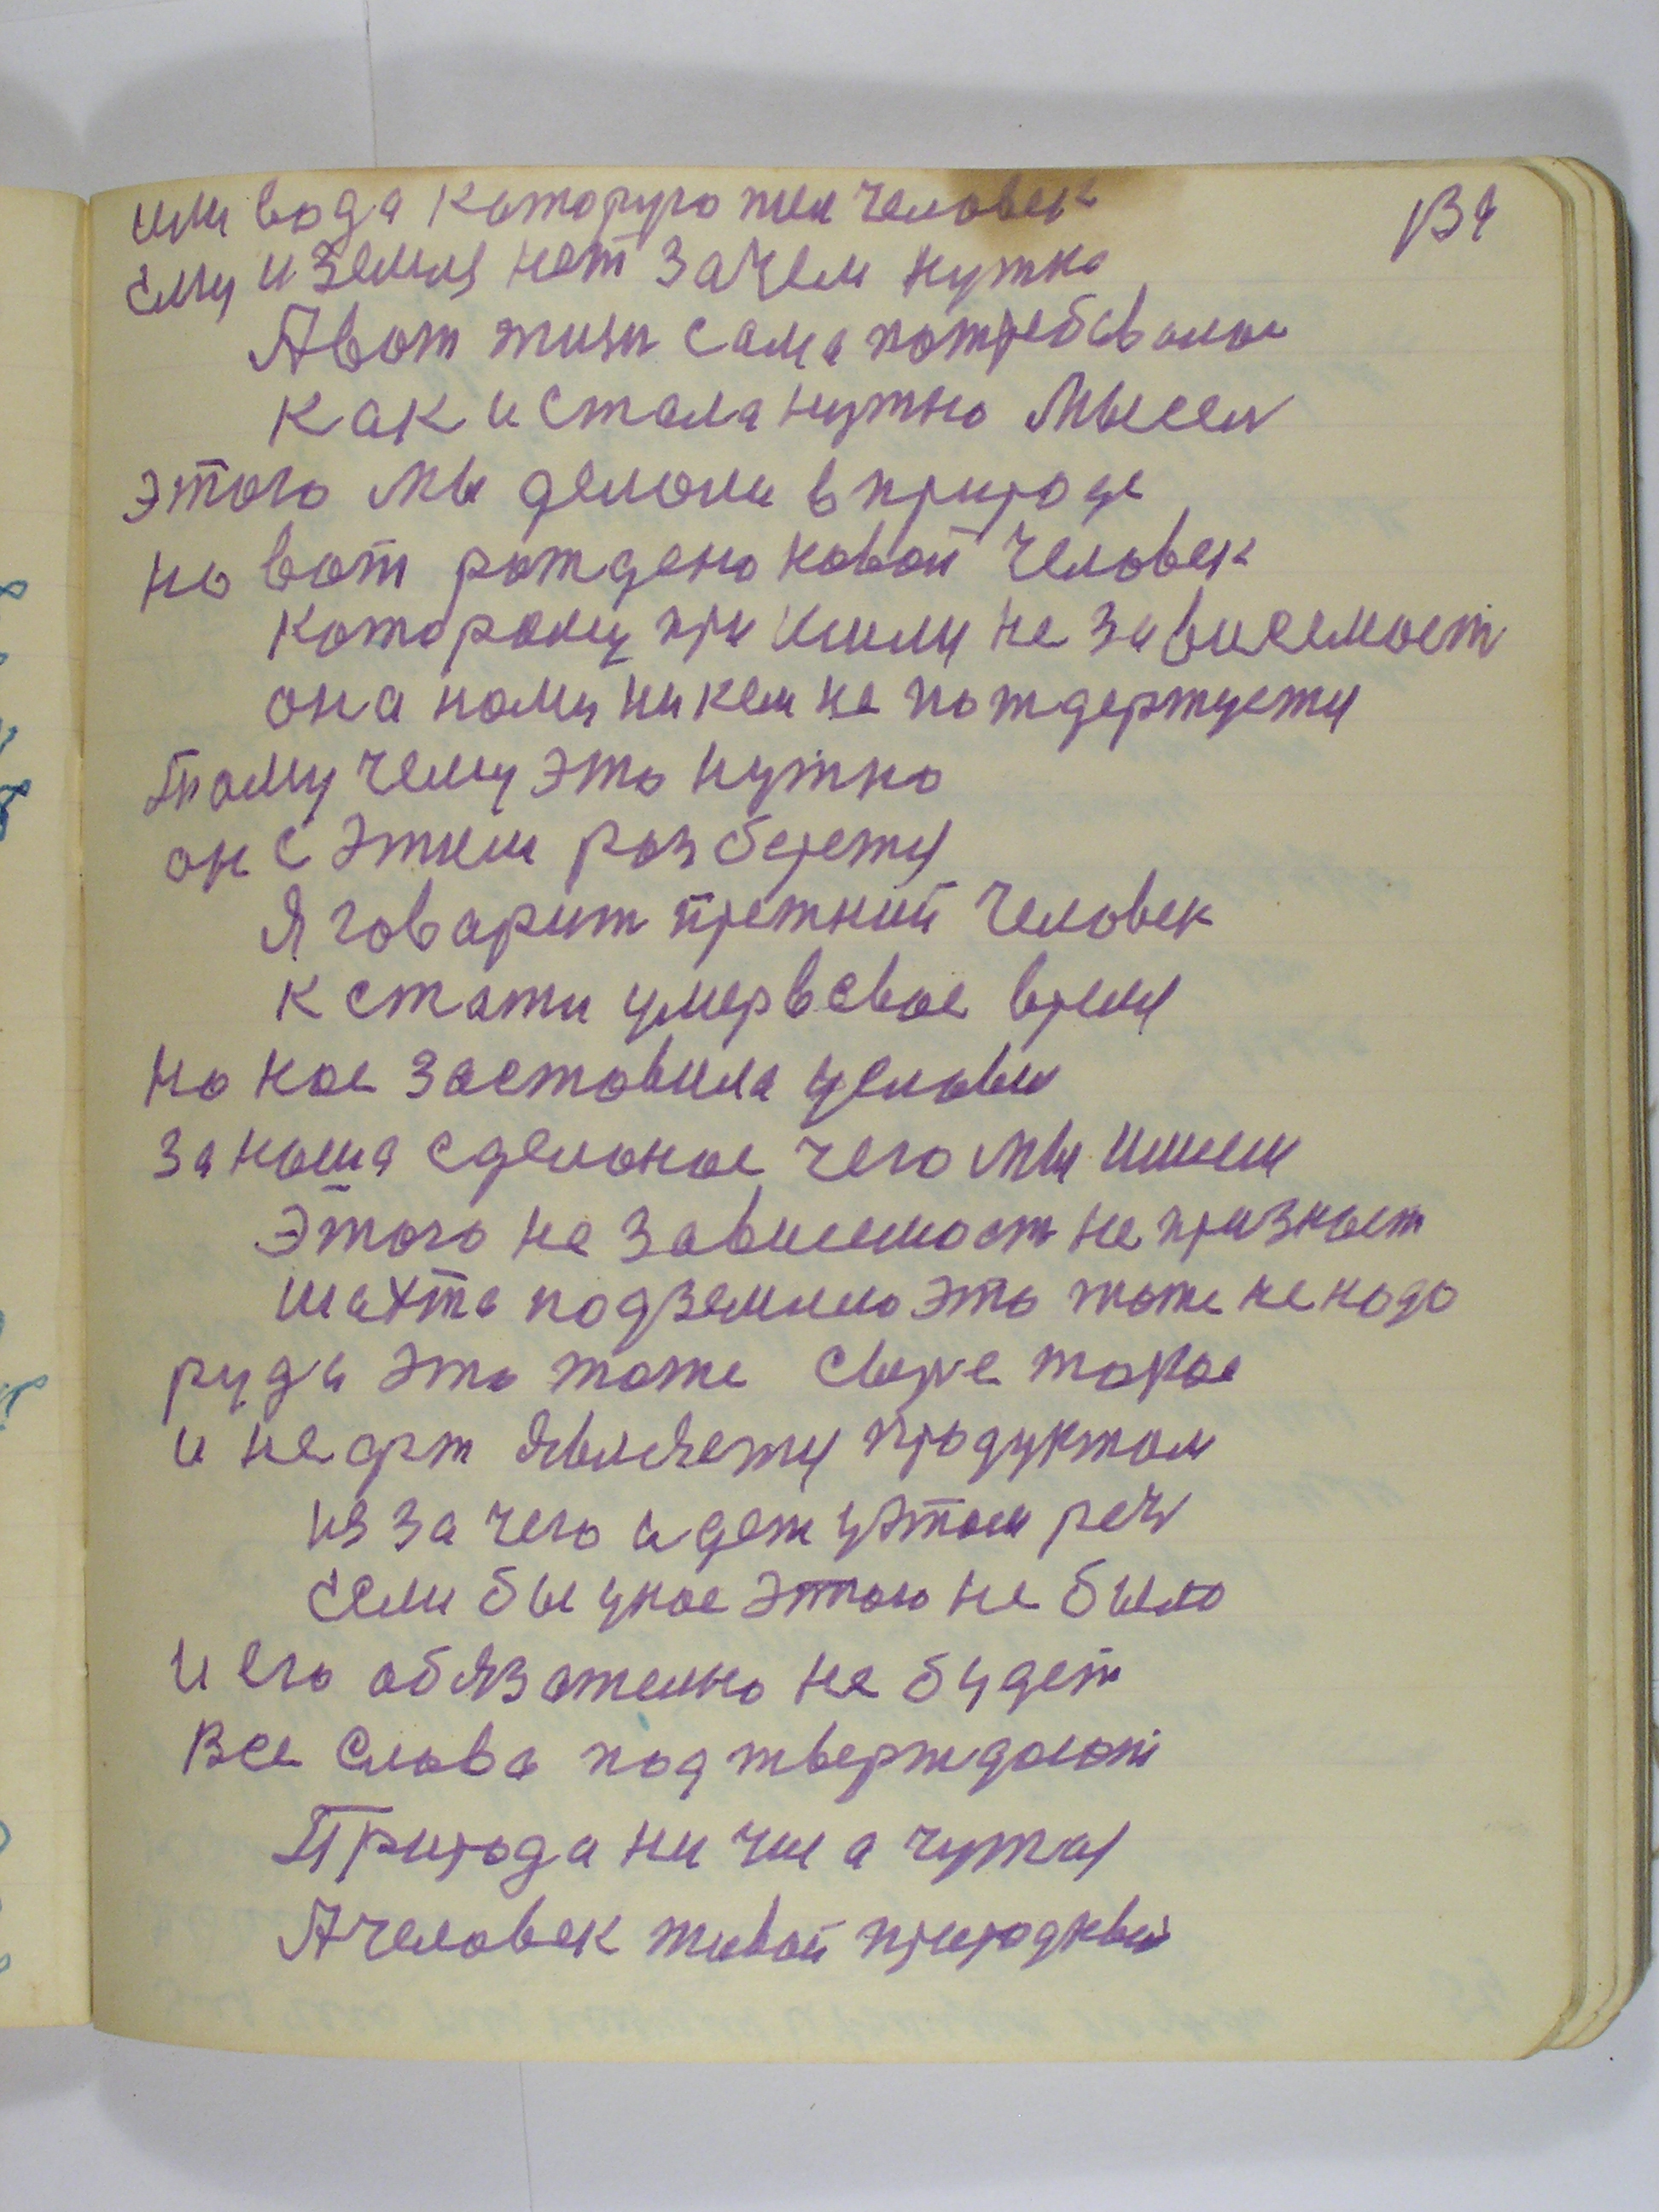 или вода которую пил человек
139
ему и земля нет зачем нужна
А вот жизн сама потребовалас
как и стала нужно мысел
этого мы делоли в природе
но вот рождено новой человек
которому при не зависемост
она номи никем не пождержуетя
тому чему это нужно
он с этим розберетя
Я говарит прежний человек
к стати умер в свое время
но нас заставила условия
за наша сделоное чего мы имеем
Этого не зависемост не признает
шахта подземило это тоже не нодо
руда это тоже сыре токое
и нефт являетя продуктом
из за чего идет у этом реч
если бы унас этого не было
и его обязотелно не будет
Все слова подтверждают
Природа ни чия чужая
А человек живой природный